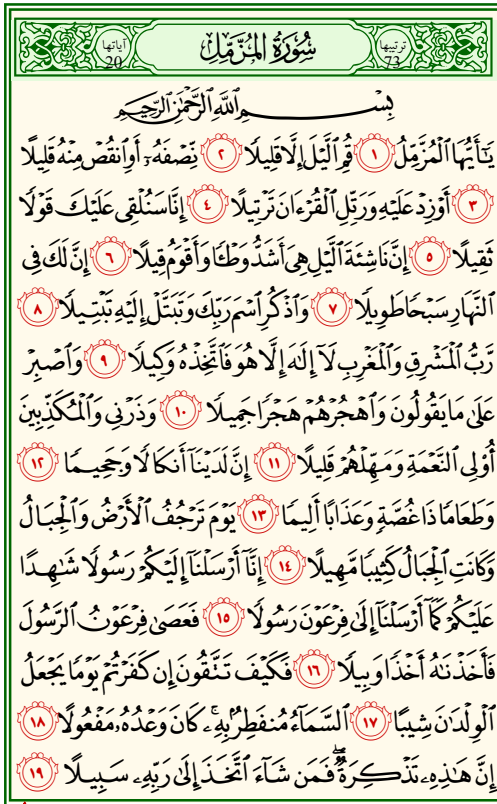 ترتيبها 73 سُورَةُ المُزَّمِّل آياتها 20
بِسْمِ ٱللَّهِ ٱلرَّحْمَٰنِ ٱلرَّحِيمِ
يَٰٓأَيُّهَا ٱلْمُزَّمِّلُ ١ قُمِ ٱلَّيْلَ إِلَّا قَلِيلًا ٢ نِّصْفَهُۥٓ أَوِ ٱنقُصْ مِنْهُ قَلِيلًا
٣ أَوْ زِدْ عَلَيْهِ وَرَتِّلِ ٱلْقُرْءَانَ تَرْتِيلًا ٤ إِنَّا سَنُلْقِى عَلَيْكَ قَوْلًا
ثَقِيلًا ٥ إِنَّ نَاشِئَةَ ٱلَّيْلِ هِىَ أَشَدُّ وَطْـًٔا وَأَقْوَمُ قِيلًا ٦ إِنَّ لَكَ فِى
ٱلنَّهَارِ سَبْحًا طَوِيلًا ٧ وَٱذْكُرِ ٱسْمَ رَبِّكَ وَتَبَتَّلْ إِلَيْهِ تَبْتِيلًا ٨
رَّبُّ ٱلْمَشْرِقِ وَٱلْمَغْرِبِ لَآ إِلَٰهَ إِلَّا هُوَ فَٱتَّخِذْهُ وَكِيلًا ٩ وَٱصْبِرْ
عَلَىٰ مَا يَقُولُونَ وَٱهْجُرْهُمْ هَجْرًا جَمِيلًا ١٠ وَذَرْنِى وَٱلْمُكَذِّبِينَ
أُو۟لِى ٱلنَّعْمَةِ وَمَهِّلْهُمْ قَلِيلًا ١١ إِنَّ لَدَيْنَآ أَنكَالًا وَجَحِيمًا ١٢
وَطَعَامًا ذَا غُصَّةٍ وَعَذَابًا أَلِيمًا ١٣ يَوْمَ تَرْجُفُ ٱلْأَرْضُ وَٱلْجِبَالُ
وَكَانَتِ ٱلْجِبَالُ كَثِيبًا مَّهِيلًا ١٤ إِنَّآ أَرْسَلْنَآ إِلَيْكُمْ رَسُولًا شَٰهِدًا
عَلَيْكُمْ كَمَآ أَرْسَلْنَآ إِلَىٰ فِرْعَوْنَ رَسُولًا ١٥ فَعَصَىٰ فِرْعَوْنُ ٱلرَّسُولَ
فَأَخَذْنَٰهُ أَخْذًا وَبِيلًا ١٦ فَكَيْفَ تَتَّقُونَ إِن كَفَرْتُمْ يَوْمًا يَجْعَلُ
ٱلْوِلْدَٰنَ شِيبًا ١٧ ٱلسَّمَآءُ مُنفَطِرٌۢ بِهِۦ ۚ كَانَ وَعْدُهُۥ مَفْعُولًا ١٨
إِنَّ هَٰذِهِۦ تَذْكِرَةٌ ۖ فَمَن شَآءَ ٱتَّخَذَ إِلَىٰ رَبِّهِۦ سَبِيلًا ١٩